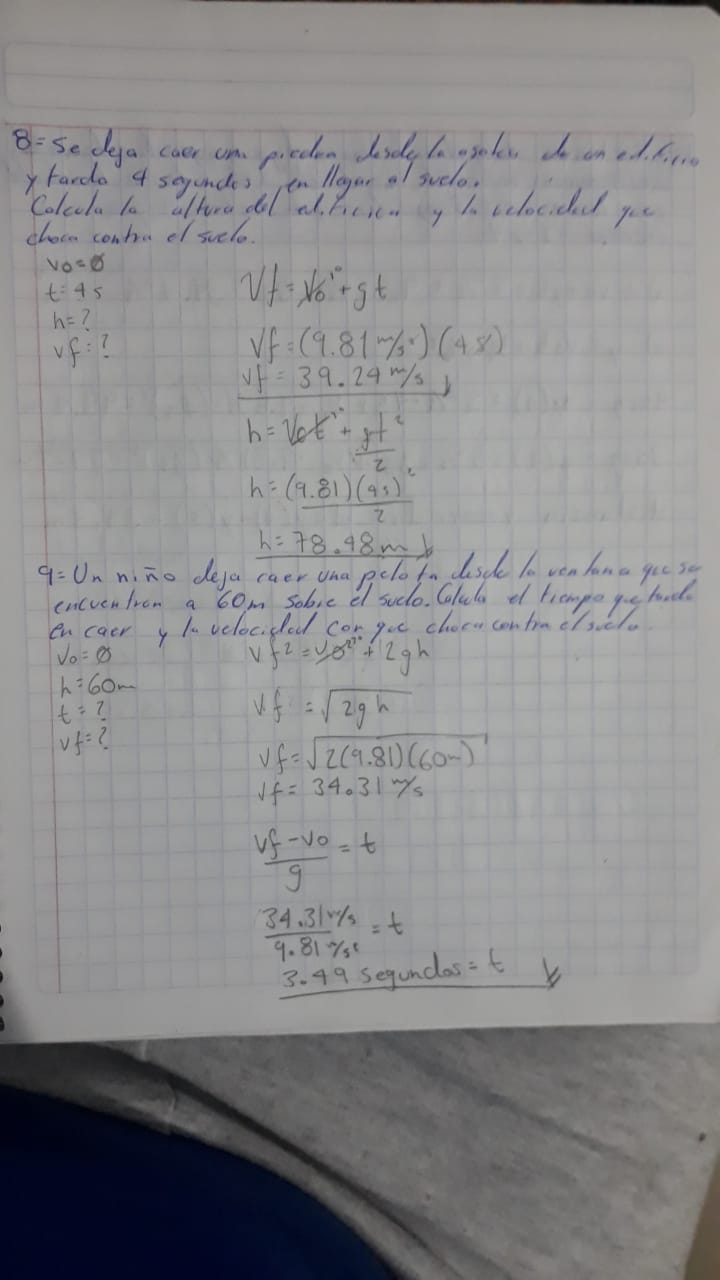 8= Se deja caer una piedra desde la azotea de un edificio
y tarda 4 segundos en llegar al suelo.
Calcula la altura del edificio y la velocidad que
choca contra el suelo.
Vo=0
t=4s
h=?
vf=?
Vf=Vo+gt
Vf=(9.81m/s²)(4s)
vf=39.24m/s
h=Vot+gt²/2
h=(9.81)(4s)²/2
h=78.48m
9= Un niño deja caer una pelota desde la ventana que se
encuentran a 60m sobre el suelo. Calcula el tiempo que tarda
en caer y la velocidad con que choca contra el suelo.
Vo=0
h=60m
t=?
vf=?
Vf²=Vo²+2gh
Vf=√2gh
Vf=√2(9.81)(60m)
Vf=34.31m/s
Vf-Vo/g=t
34.31m/s/9.81m/s²=t
3.49 segundos=t